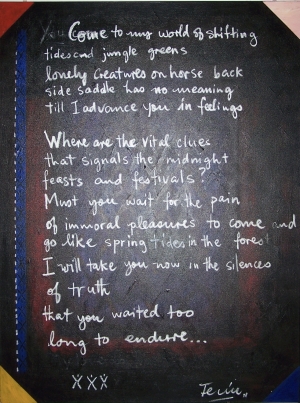 You Come to my world of shifting
tides and jungle greens
lonely creatures on horse back
side saddle has no meaning
till I advance you in feelings
Where are the vital clues
that signals the midnight
feasts and festivals?
Must you wait for the pain
of immoral pleasures to come and
go like spring tides in the forest
I will take you now in the silences
of truth
that you waited too
long to endure...
XXX